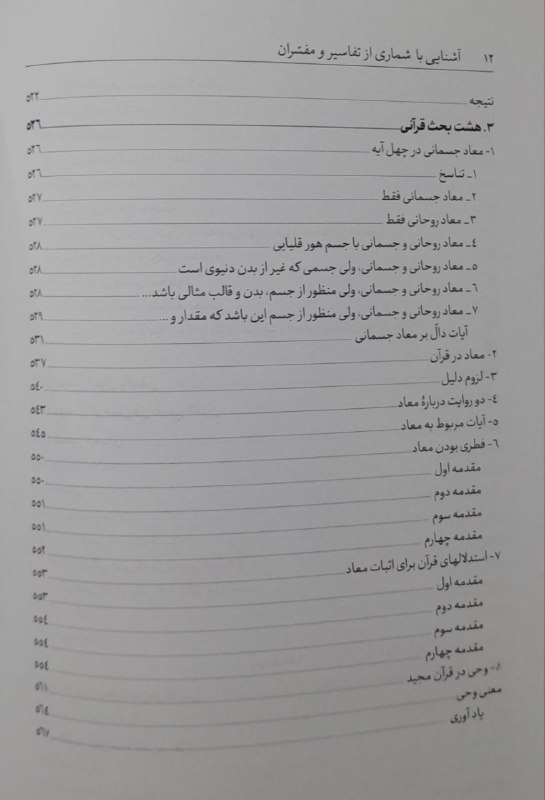 ۱۲ آشنایی با شماری از تفاسیر و مفسّران
نتیجه ۵۲۲
۳. هشت بحث قرآنی ۵۲٦
۱- معاد جسمانی در چهل آیه ۵۲٦
۱ـ تناسخ ۵۲٦
۲ـ معاد جسمانی فقط ۵۲۷
۳ـ معاد روحانی فقط ۵۲۷
٤ـ معاد روحانی و جسمانی با جسم هور قلیایی ۵۲۸
۵ـ معاد روحانی و جسمانی، ولی جسمی که غیر از بدن دنیوی است ۵۲۸
٦ـ معاد روحانی و جسمانی، ولی منظور از جسم، بدن و قالب مثالی باشد... ۵۲۸
۷ـ معاد روحانی و جسمانی، ولی منظور از جسم این باشد که مقدار و ... ۵۲۹
آیات دالّ بر معاد جسمانی ۵۳۱
۲- معاد در قرآن ۵۳۷
۳- لزوم دلیل ۵٤۰
٤- دو روایت دربارهٔ معاد ۵٤۳
۵- آیات مربوط به معاد ۵٤۵
٦- فطری بودن معاد ۵۵۰
مقدمه اول ۵۵۰
مقدمه دوم ۵۵۱
مقدمه سوم ۵۵۱
مقدمه چهارم ۵۵۲
۷- استدلالهای قرآن برای اثبات معاد ۵۵۳
مقدمه اول ۵۵۳
مقدمه دوم ۵۵٤
مقدمه سوم ۵۵٤
مقدمه چهارم ۵۵٤
۸- وحی در قرآن مجید ۵٦۱
معنی وحی ۵٦٤
یاد آوری ۵٦۷